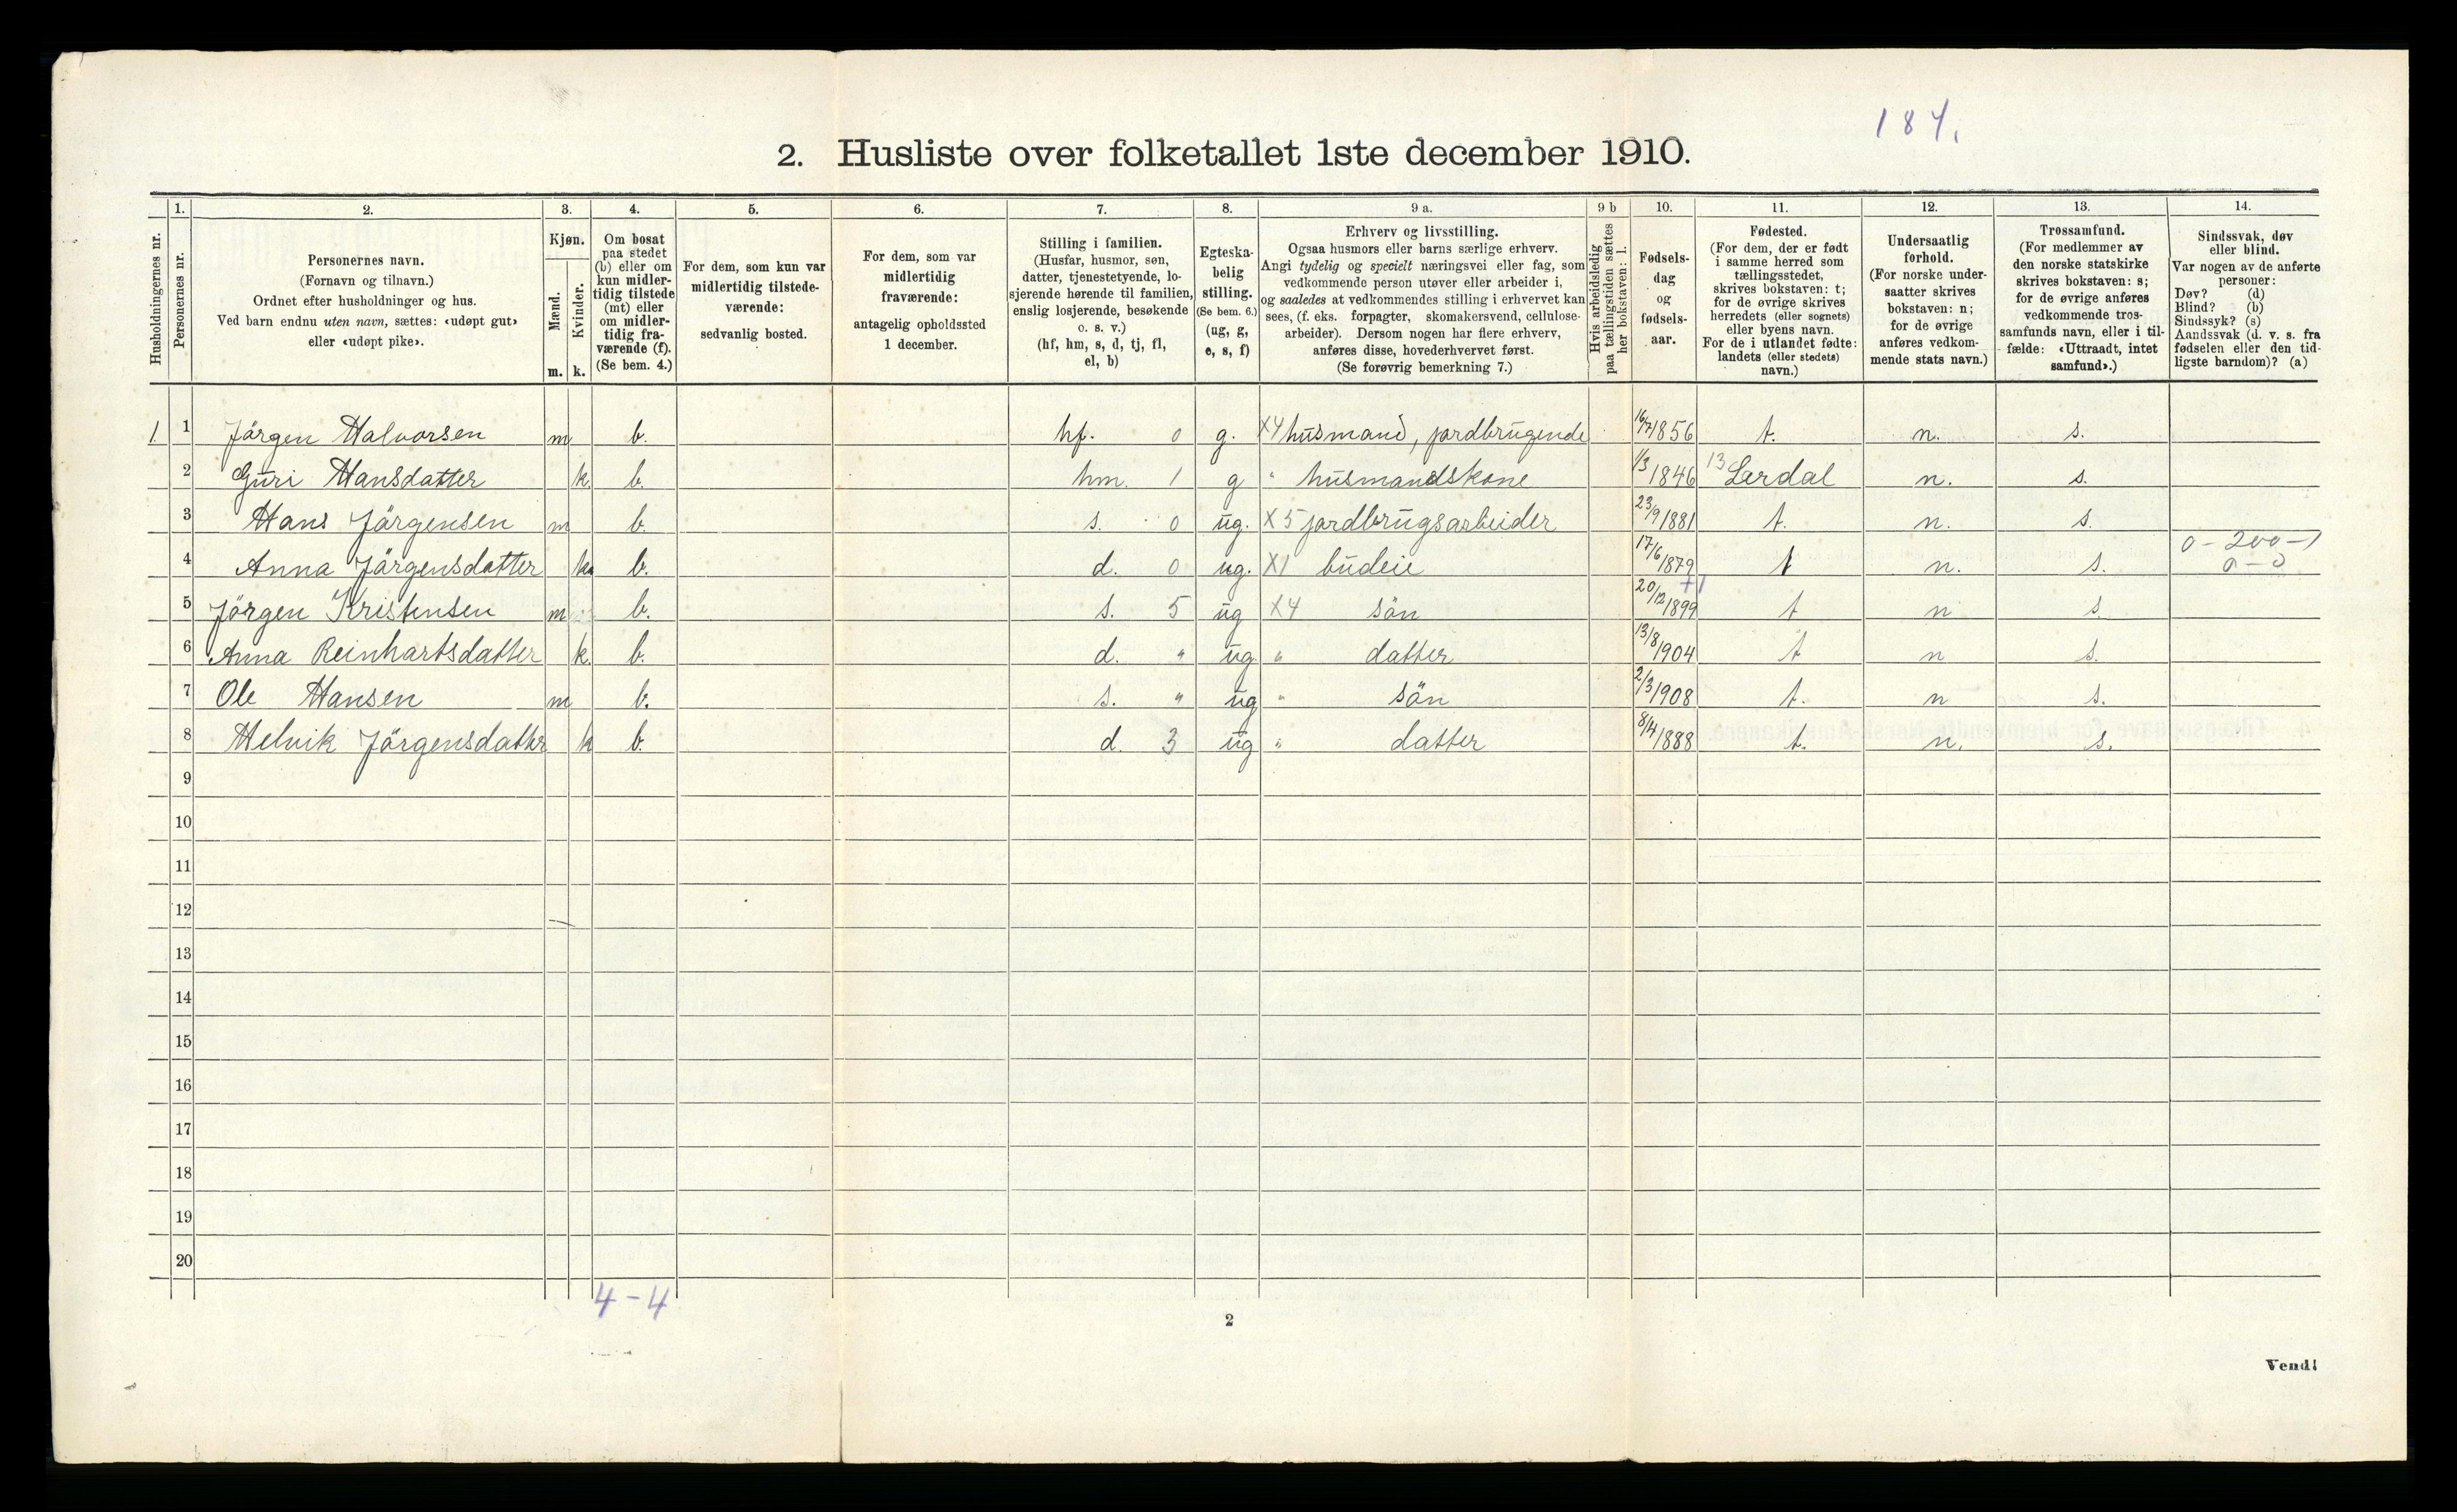 184.
2. Husliste over folketallet 1ste december 1910.
Husholdningernes nr.
1.
Personernes nr.
2.
Personernes navn.
(Fornavn og tilnavn.)
Ordnet efter husholdninger og hus.
Ved barn endnu uten navn, sættes: «udøpt gut»
eller «udøpt pike».
3.
Kjøn.
Mænd.
Kvinder.
m. k.
4.
Om bosat
paa stedet
(b) eller om
kun midler-
tidig tilstede
(mt) eller
om midler-
tidig fra-
værende (f).
(Se bem. 4.)
5.
For dem, som kun var
midlertidig tilstede-
værende:
sedvanlig bosted.
6.
For dem, som var
midlertidig
fraværende:
antagelig opholdssted
1 december.
7.
Stilling i familien.
(Husfar, husmor, søn,
datter, tjenestetyende, lo-
sjerende hørende til familien,
enslig losjerende, besøkende
o. s. v.)
(hf, hm, s, d, tj, fl,
el, b)
8.
Egteska-
belig
stilling.
(Se bem. 6.)
(ug, g,
e, s, f)
9 a.
Erhverv og livsstilling.
Ogsaa husmors eller barns særlige erhverv.
Angi tydelig og specielt næringsvei eller fag, som
vedkommende person utøver eller arbeider i,
og saaledes at vedkommendes stilling i erhvervet kan
sees, (f. eks. forpagter, skomakersvend, cellulose-
arbeider). Dersom nogen har flere erhverv,
anføres disse, hovederhvervet først.
(Se forøvrig bemerkning 7.)
9 b
Hvis arbeidsledig
paa tællingstiden sættes
her bokstaven: l.
10.
Fødsels-
dag
og
fødsels-
aar.
11.
Fødested.
(For dem, der er født
i samme herred som
tællingsstedet,
skrives bokstaven: t;
for de øvrige skrives
herredets (eller sognets)
eller byens navn.
For de i utlandet fødte:
landets (eller stedets)
navn.)
12.
Undersaatlig
forhold.
(For norske under-
saatter skrives
bokstaven: n;
for de øvrige
anføres vedkom-
mende stats navn.)
13.
Trossamfund.
(For medlemmer av
den norske statskirke
skrives bokstaven: s;
for de øvrige anføres
vedkommende tros-
samfunds navn, eller i til-
fælde: «Uttraadt, intet
samfund».)
14.
Sindssvak, døv
eller blind.
Var nogen av de anførte
personer:
Døv? (d)
Blind? (b)
Sindssyk? (s)
Aandssvak (d. v. s. fra
fødselen eller den tid-
ligste barndom)? (a)
1. 1 Jörgen Halvorsen m b. hf. 0 g. X4 husmand, jordbrugende 16/7 1856 t. n. s.
2 Guri Hansdatter k. b. hm. 1 g " husmandskone 1/3 1846 13 Lerdal n. s.
3 Hans Jörgensen m b. s. 0 ug. X5 jordbrugsarbeider 23/9 1881 t. n. s.
4 Anna Jörgensdatter k. b. d. 0 ug. X1 budeie 17/6 1879 t n. s. 0-200-1
5 Jörgen Kristensen m b. s. 5 ug X4 sön 20/12 1899 +1 t n s
6 Anna Reinhartsdatter k. b. d. " ug. " datter 13/8 1904 t n s.
7 Ole Hansen m b. s. " ug " sön 2/3 1908 t. n s.
8 Helvik Jörgensdatter k b. d. 3 ug " datter 8/4 1888 t. n. s.
9
10
11
12
13
14
15
16
17
18
19
20
4-4
2
Vend!